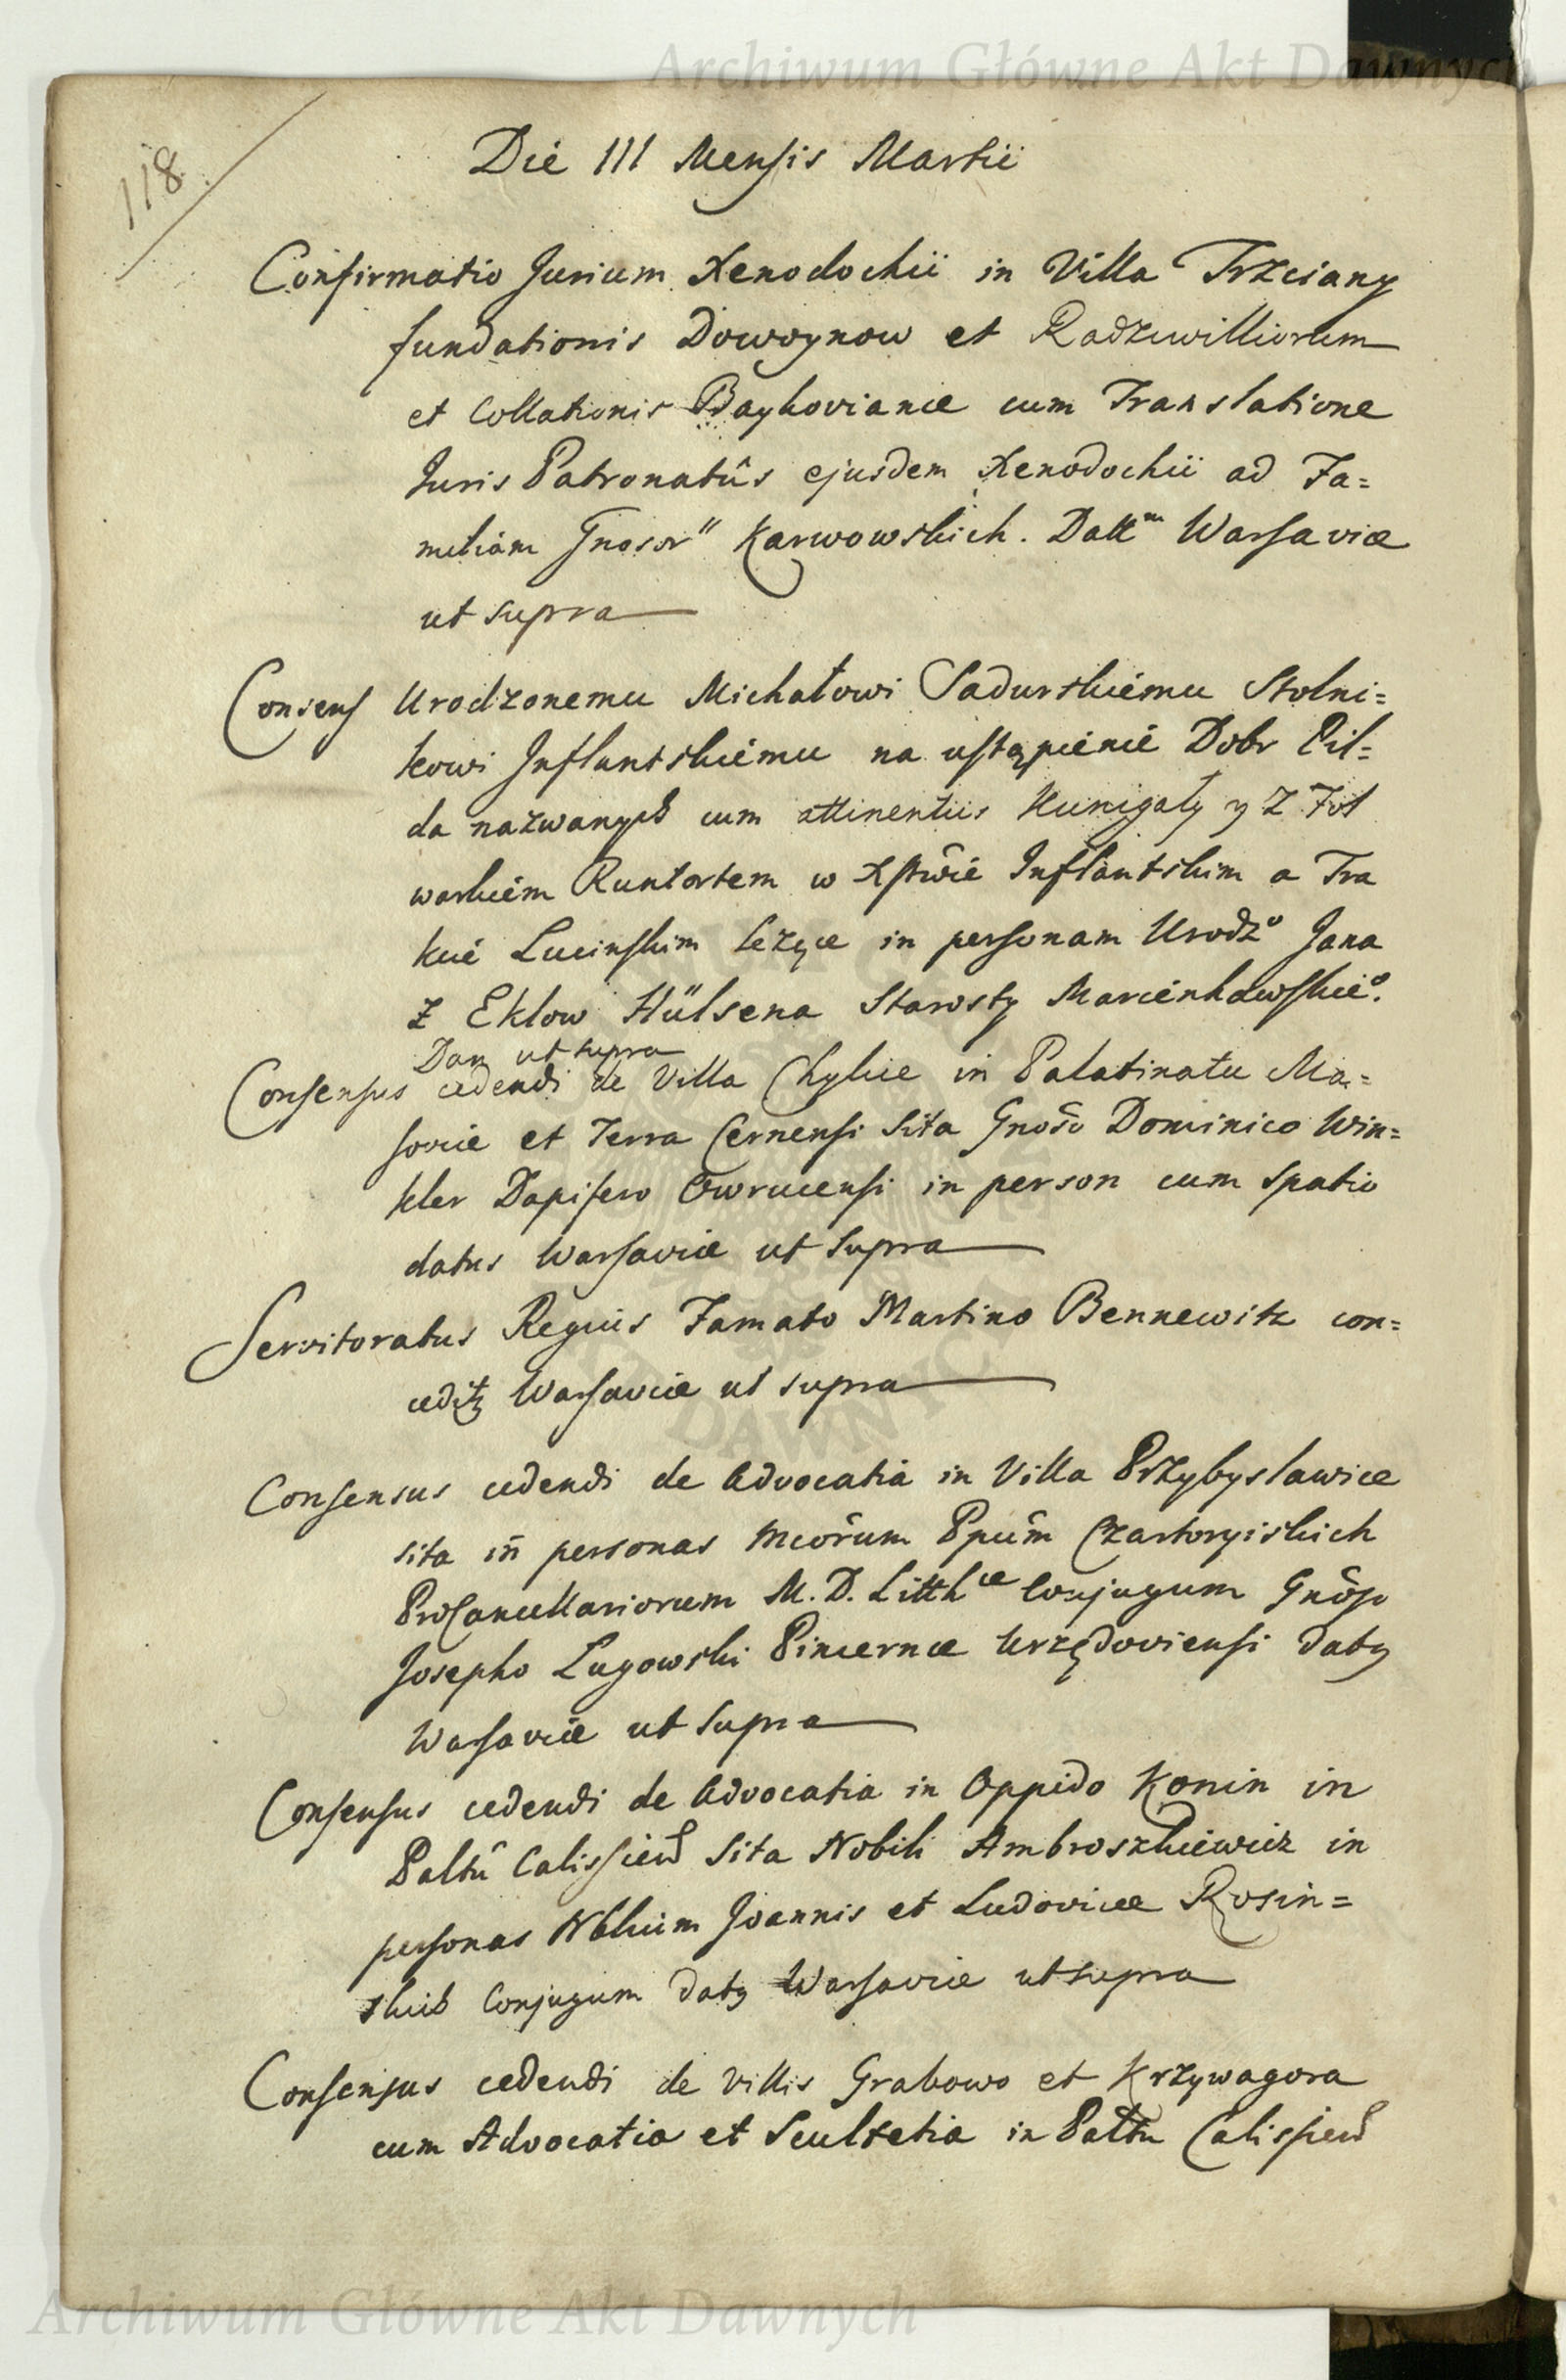 Archiwum Główne Akt Dawnych
118
Die III Mensis Martii
Confirmatio Jurium Xenodochii in Villa Trzciany
fundationis Dowoynow et Radziwilliorum
et Collationis Baykovianæ cum Translatione
Juris Patronatûs ejusdem Xenodochii ad Fa=
miliam Gnosor" Karwowskich. Datt^m Warsaviæ
ut supra
Consens Urodzonemu Michałowi Sadurskiemu Stolni=
kowi Inflantskiemu na ustąpienie Dobr Pil=
da nazwanych cum attinentiis Kunigały y z Fol
warkiem Runtortem w Xstwie Inflantskim a Tra
kcie Lucinskim leżące in personam Urodz^o Jana
z Eklow Hülsena Starosty Marcienhawskie^o.
Dan ut supra
Consensus cedendi de Villa Chylice in Palatinatu Ma=
soviæ et Terra Cernensi sita Gnoso Dominico Win=
kler Dapifero Owrucensi in person cum spatio
datus Warsaviæ ut supra
Servitoratus Regius Famato Martino Bennewitz con=
ceditz Warsaviæ ut supra
Consensus cedendi de Advocatia in Villa Przybysławice
sita in personas Mcorum Ppum Czartoryiskich
ProCancellariorum M. D. Litth^æ Conjugum Gnoso
Josepho Lugowski Pincernæ Urzędoviensi datg
Warsaviæ ut supra
Consensus cedendi de Advocatia in Oppido Konin in
Paltû Calissien sita Nobili Ambroszkiewicz in
personas Nblium Joannis et Ludovicæ Rosin=
skich Conjugum datg Warsaviæ ut supra
Consensus cedendi de villis Grabowo et Krzywagora
cum Advocatia et Scultetia in Paltu Calissien
Archiwum Główne Akt Dawnych